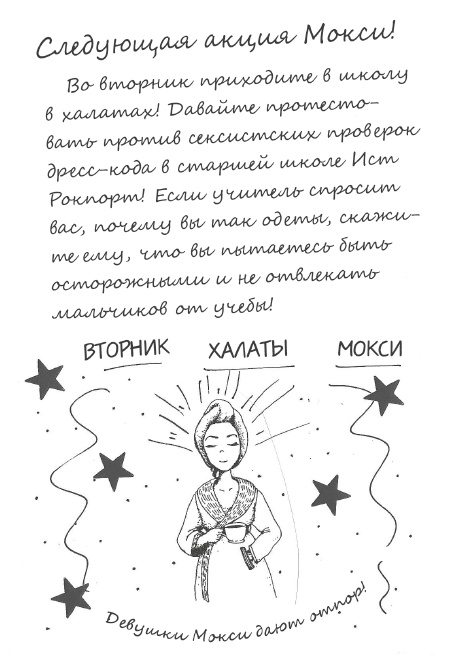 Следующая акция Мокси!
Во вторник приходите в школу
в халатах! Давайте протесто-
вать против сексистских проверок
дресс-кода в старшей школе Ист
Рокпорт! Если учитель спросит
вас, почему вы так одеты, скажи-
те ему, что вы пытаетесь быть
осторожными и не отвлекать
мальчиков от учебы!
ВТОРНИК ХАЛАТЫ МОКСИ
Девушки Мокси дают отпор!